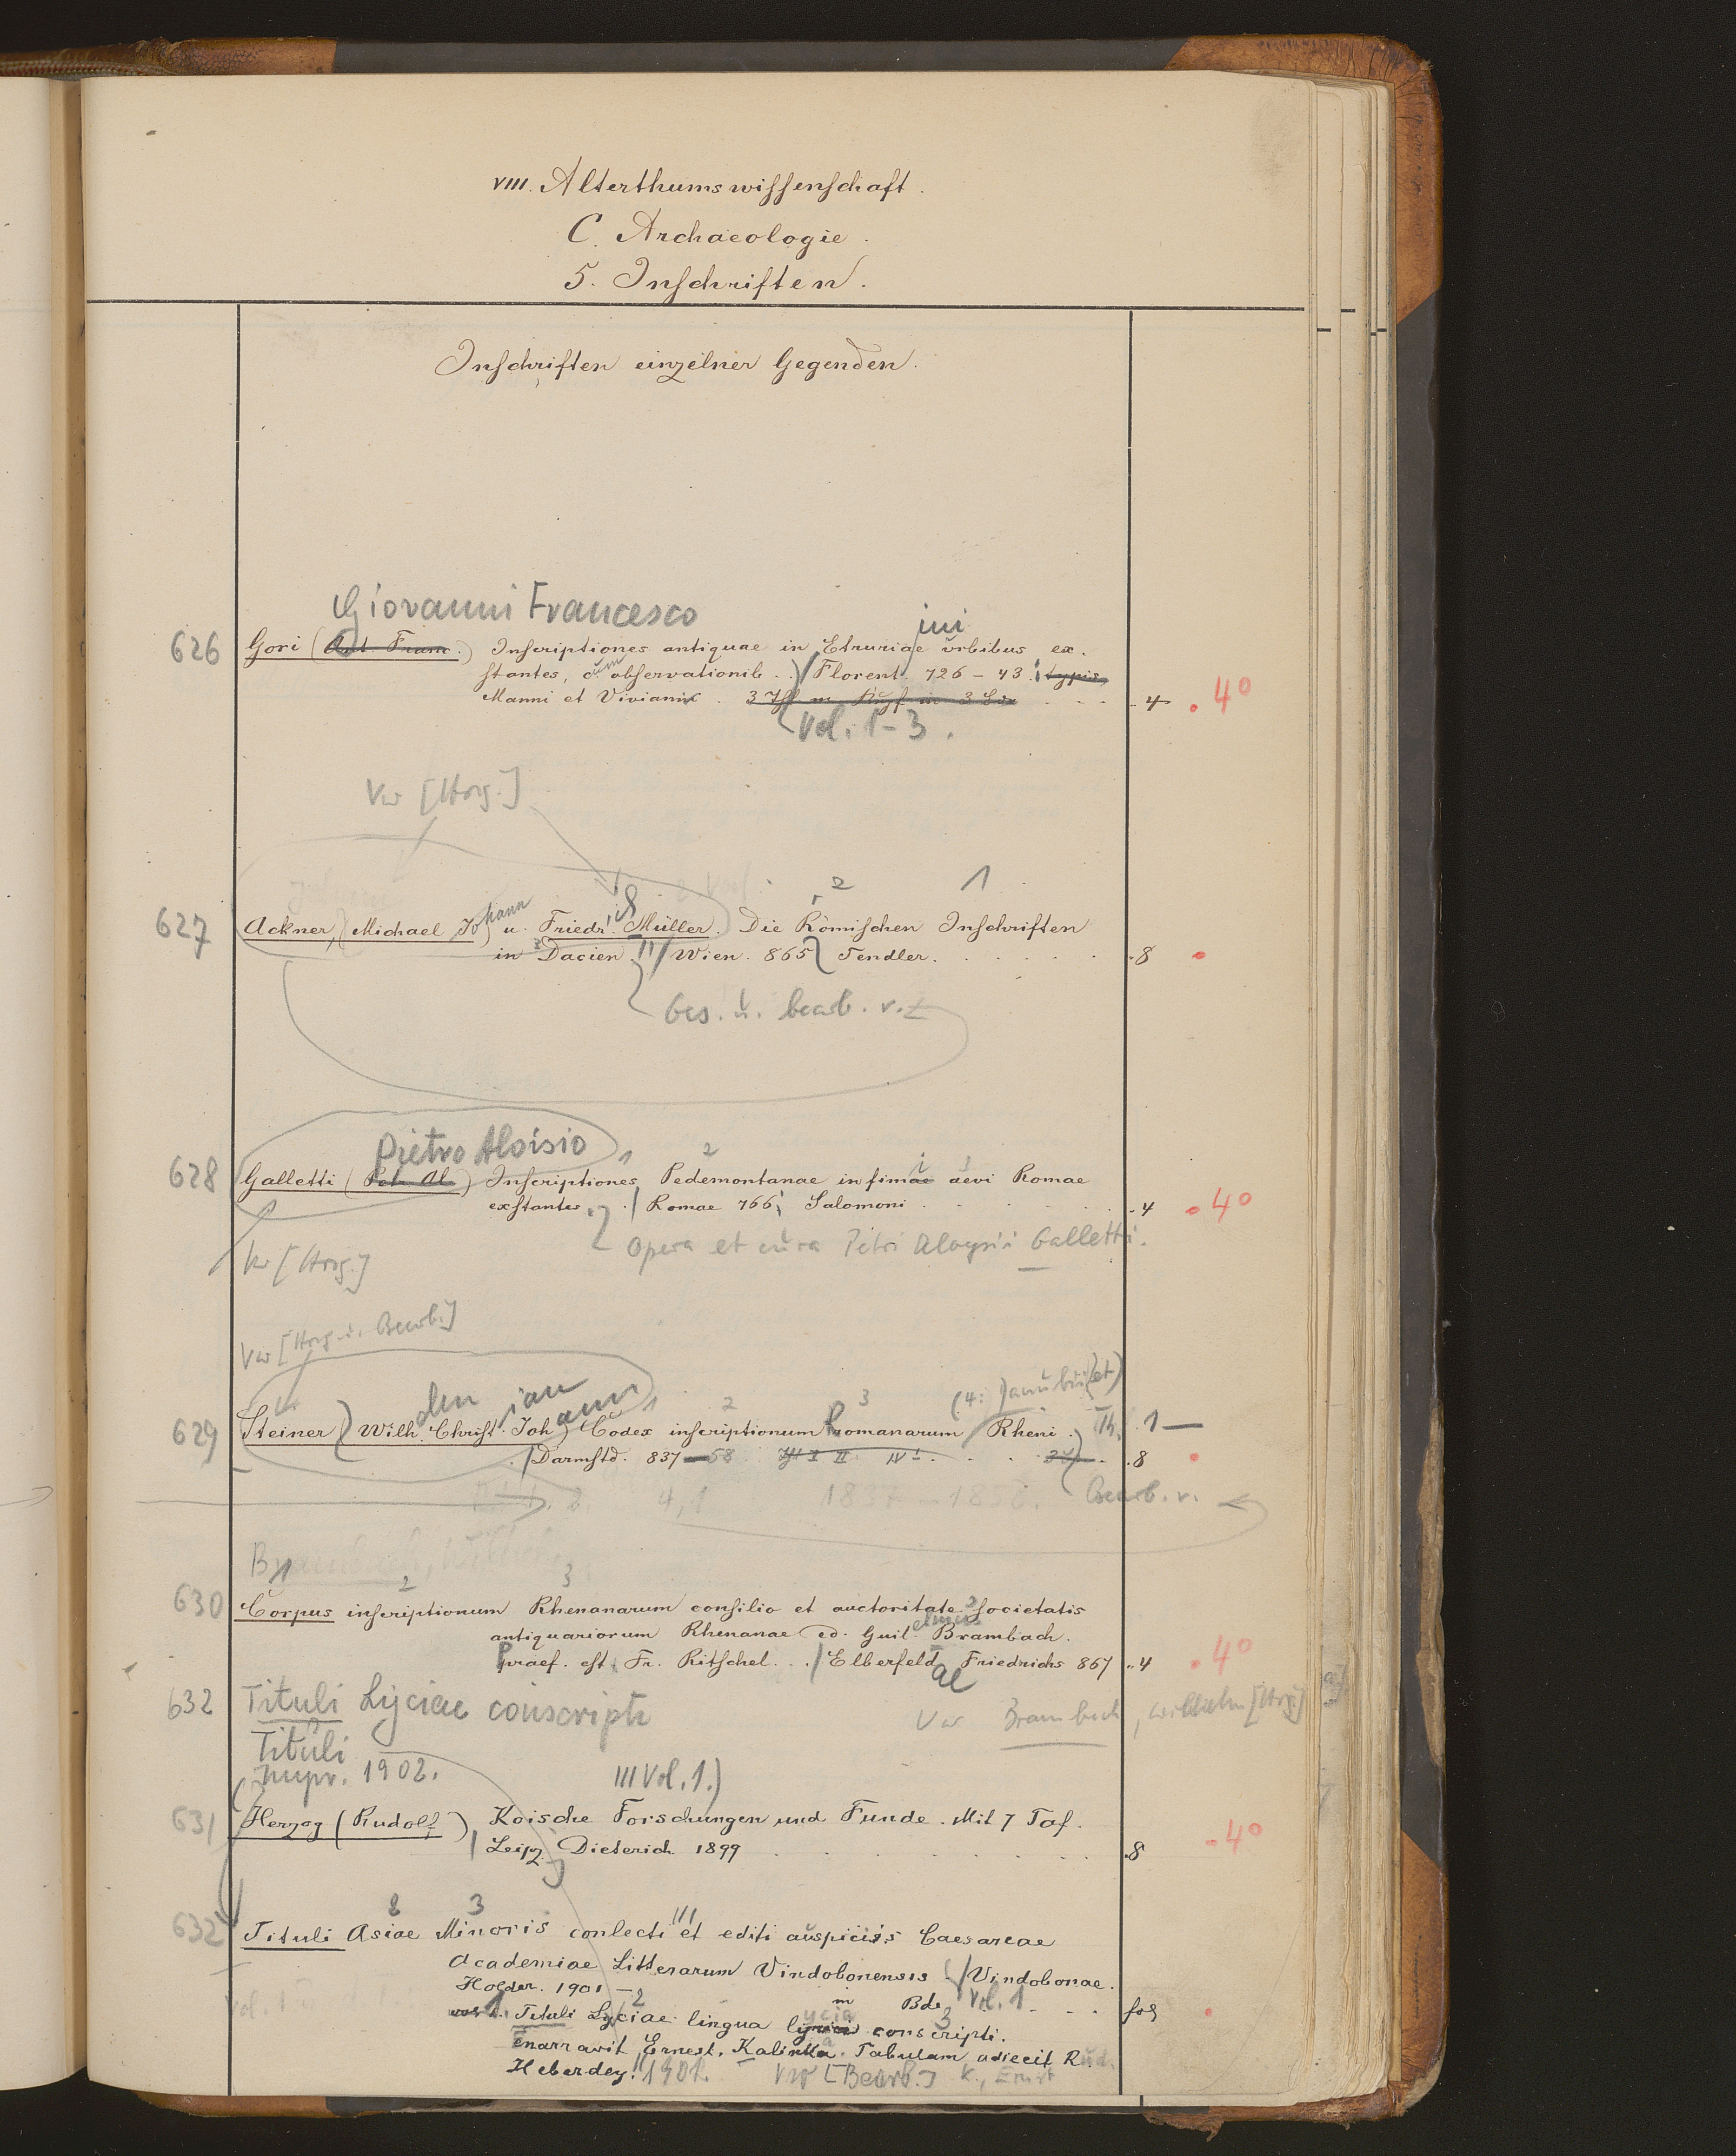 VIII. Alterthumswissenschaft.
C. Archaeologie.
5. Inschriften.
Inschriften einzelner Gegenden.
Giovanni Francesco
ini
626 Gori (Ant. Franc.) Inscriptiones antiquae in Etruriae urbibus ex-
stantes, cum observationib. Florent. 726 – 43. typis,
Manni et Viviani. 3 4 . 4°
Vol. 1 – 3.
Vw [Hrsg.]
2 1
627 Ackner, (Michael Johann) u. Friedrich Müller. Die Römischen Inschriften
in Dacien. Wien. 865 Tendler. 8
Ges. u. bearb. v.
Pietro Aloisio 1 2 3
628 Galletti (Petr. Al.) Inscriptiones Pedemontanae infimae aevi Romae
exstantes. Romae 766; Salomoni 4 . 4°
Opera et cura Petri Aloysii Galletti.
Vw [Hrsg.]
Vw [Hrsg. u. Bearb.]
1 2 3 (4: Danubii (et)
629 Steiner (Wilh. Christian Johann) Codex inscriptionum Romanarum Rheni. Th. 1 —
Darmstd. 837 – 58. I II IV 8
4,1 1837 – 1858. Bearb. v.
Brambach, Wilh.
1 2 3
630 Corpus inscriptionum Rhenanarum consilio et auctoritate societatis
antiquariorum Rhenanae ed. Guilelmus Brambach.
Praef. est Fr. Ritschel. Elberfeld Friedrichs 867 4 . 4°
632 Tituli Lyciae conscripti
Vw Brambach, Wilhelm [Hrsg.]
Tituli
1902. III Vol. 1.)
631 Herzog (Rudolf) Koische Forschungen und Funde. Mit 7 Taf.
Leipz. Dieterich 1899 8 . 4°
3
632 Tituli Asiae Minoris conlecti et editi auspiciis Caesareae
Academiae Litterarum Vindobonensis Vindobonae.
Holder. 1901 –
in Bde Vol. 1 fol
1. Tituli Lyciae lingua lycia conscripti.
Enarravit Ernest. Kalinka. Tabulam adiecit Rud.
Heberdey. 1901. Vw [Bearb.] K., Ernst